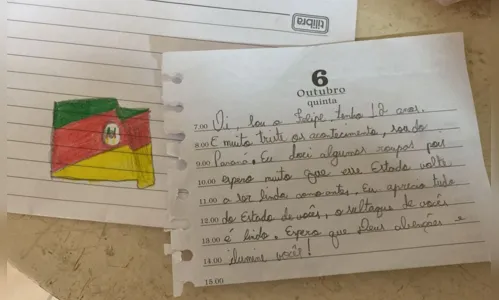 tilibra
6
Outubro
quinta
7:00 Oi, sou o Felipe tenho 12 anos.
8:00 E muito triste os acontecimento, sou do
9:00 Paraná. Eu doei algumas roupas pois
10:00 espero muito que esse Estado volte
11:00 a ser lindo como antes, Eu aprecio tudo
12:00 do Estado de vocês, o sultaque de vocês
13:00 é lindo. Espero que Deus abençoes e
14:00 ilumine você!
15:00